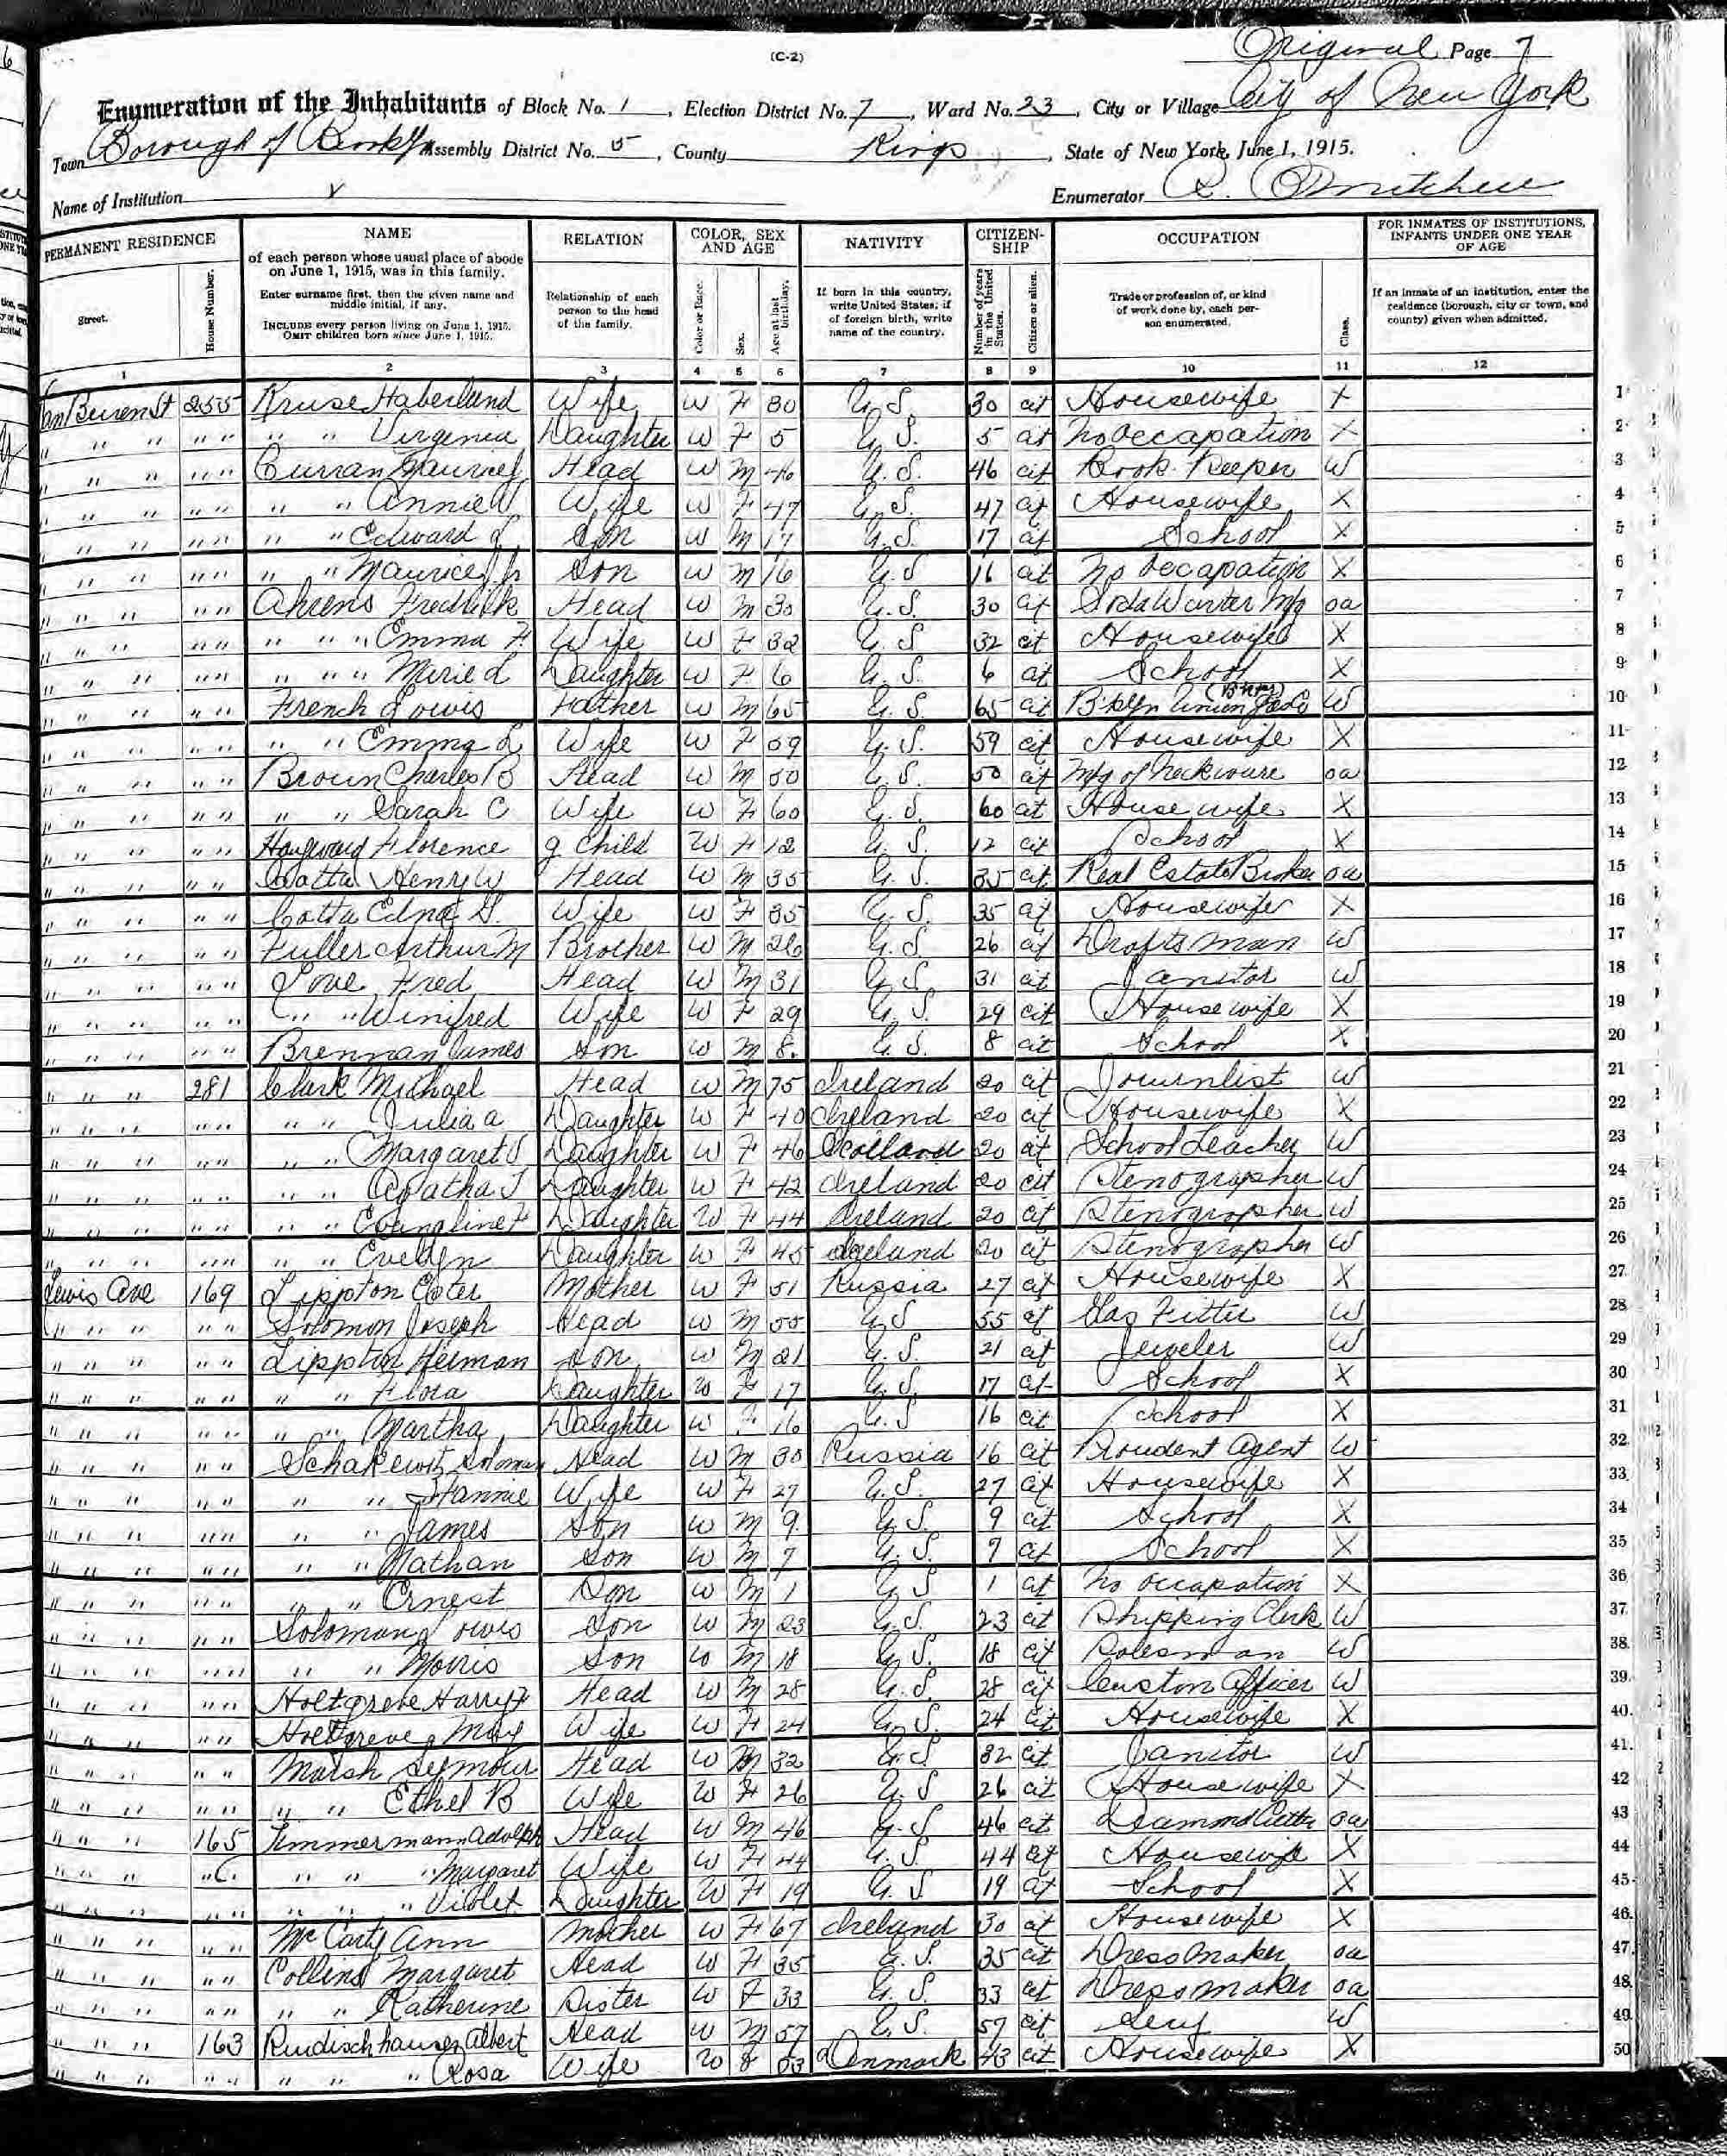 (C-2)
Original Page 7
Enumeration of the Inhabitants of Block No. 1, Election District No. 7, Ward No. 23, City or Village City of New York
Town Borough of Assembly District No. 5, County Kings, State of New York, June 1, 1915.
Name of Institution Enumerator Mitchell
PERMANENT RESIDENCE NAME RELATION COLOR, SEX AND AGE NATIVITY CITIZENSHIP OCCUPATION FOR INMATES OF INSTITUTIONS, INFANTS UNDER ONE YEAR OF AGE
Street. House Number. of each person whose usual place of abode on June 1, 1915, was in this family. Enter surname first, then the given name and middle initial, if any. INCLUDE every person living on June 1, 1915. OMIT children born since June 1, 1915. Relationship of each person to the head of the family. Color or Race. Sex. Age at last birthday. If born in this country, write United States; if of foreign birth, write name of the country. Number of years in the United States. Citizen or alien. Trade or profession of, or kind of work done by, each person enumerated. Class. If an inmate of an institution, enter the residence (borough, city or town, and county) given when admitted.
1 2 3 4 5 6 7 8 9 10 11 12
Van Buren St 255 Kruse Haberland Wife W F 30 U.S. 30 cit Housewife X 1
" " " " " " Virginia Daughter W F 5 U.S. 5 cit No Occapation X 2
" " " " Curran Head W M 46 U.S. 46 cit Book Keeper W 3
" " " " " " Annie Wife W F 47 U.S. 47 cit Housewife X 4
" " " " " " Edward J Son W M 17 U.S. 17 cit School X 5
" " " " " " Maurice J Jr Son W M 16 U.S 16 cit No Occapation X 6
" " " " Ahrens Fredrick Head W M 30 U.S. 30 cit Soda Water Mfg oa 7
" " " " " " " Emma F. Wife W F 32 U.S 32 cit Housewife X 8
" " " " " " " Marie L Daughter W F 6 U.S. 6 cit School X 9
" " " " French Lowis Father W M 65 U.S. 65 cit Bklyn Union Gas Co W 10
" " " " " " Emma L Wife W F 59 U.S. 59 cit Housewife X 11
" " " " Broun Charles B Head W M 50 U.S. 50 cit Mfg of Neckware oa 12
" " " " " " Sarah C Wife W F 60 U.S. 60 cit House wife X 13
" " " " Hayward Florence g Child W F 12 U.S. 12 cit School X 14
" " " " Cotta Henry W Head W M 35 U.S. 35 cit Real Estate Broker oa 15
" " " " Cotta Edna G. Wife W F 35 U.S. 35 cit Housewife X 16
" " " " Fuller Arthur M Brother W M 26 U.S 26 cit Draftsman W 17
" " " " Love Fred Head W M 31 U.S. 31 cit Janitor W 18
" " " " " " Winifred Wife W F 29 U.S. 29 cit Housewife X 19
" " " " Brennan James Son W M 8. U.S. 8 cit School X 20
" " " 281 Clark Michael Head W M 75 Ireland 20 cit Journlist W 21
" " " " " " Julia A Daughter W F 40 Ireland 20 cit Housewife X 22
" " " " " " Margaret Daughter W F 46 Scotland 20 cit School Teacher W 23
" " " " " " Agatha T Daughter W F 42 Ireland 20 cit Stenographer W 24
" " " " " " Evangline F Daughter W F 44 Ireland 20 cit Stenographer W 25
" " " " " " Evelyn Daughter W F 45 Ireland 20 cit Stenographer W 26
Lewis Ave 169 Lippton Ester Mother W F 51 Russia 27 cit Housewife X 27
" " " " " Solomon Joseph Head W M 55 U.S 55 cit Gas Fitter W 28
" " " " " Lippton Herman Son W M 21 U.S. 21 cit Jeweler W 29
" " " " " " " Flora Daughter W F 17 U.S. 17 cit School X 30
" " " " " " " Martha Daughter W F 16 U.S 16 cit School X 31
" " " " " Schakewitz Soloman Head W M 30 Russia 16 cit Prudent Agent W 32
" " " " " " " Fannie Wife W F 27 U.S. 27 cit Housewife X 33
" " " " " " " James Son W M 9. U.S. 9 cit School X 34
" " " " " " " Nathan Son W M 7 U.S. 7 cit School X 35
" " " " " " " Ernest Son W M 1 U.S 1 cit No occapation X 36
" " " " " Soloman Lowis Son W M 23 U.S. 23 cit Shipping Clerk W 37
" " " " " " " Morris Son W M 18 U.S 18 cit Salesman W 38
" " " " " Holtgreve Harry F Head W M 28 U.S. 28 cit Custom Officer W 39
" " " " " Holtgreve May Wife W F 24 U.S. 24 cit Housewife X 40
" " " " " Marsh Seymour Head W M 32 U.S 32 cit Janitor W 41
" " " " " " " Ethel B Wife W F 26 U.S 26 cit Housewife X 42
" " " 165 Timmermann Adolph Head W M 46 U.S 46 cit Diamond Cutter oa 43
" " " " " " Margaret Wife W F 44 U.S 44 cit Housewife X 44
" " " " " " " Violet Daughter W F 19 U.S 19 cit School X 45
" " " " " Mc Carty Ann Mother W F 67 Ireland 30 cit Housewife X 46
" " " " " Collins Margaret Head W F 35 U.S. 35 cit Dressmaker oa 47
" " " " " " " Katherine Sister W F 33 U.S. 33 cit Dressmaker oa 48
" " " 163 Rudischhauser Albert Head W M 57 U.S. 57 cit W 49
" " " " " " " Rosa Wife W F 53 Denmark 43 cit Housewife X 50